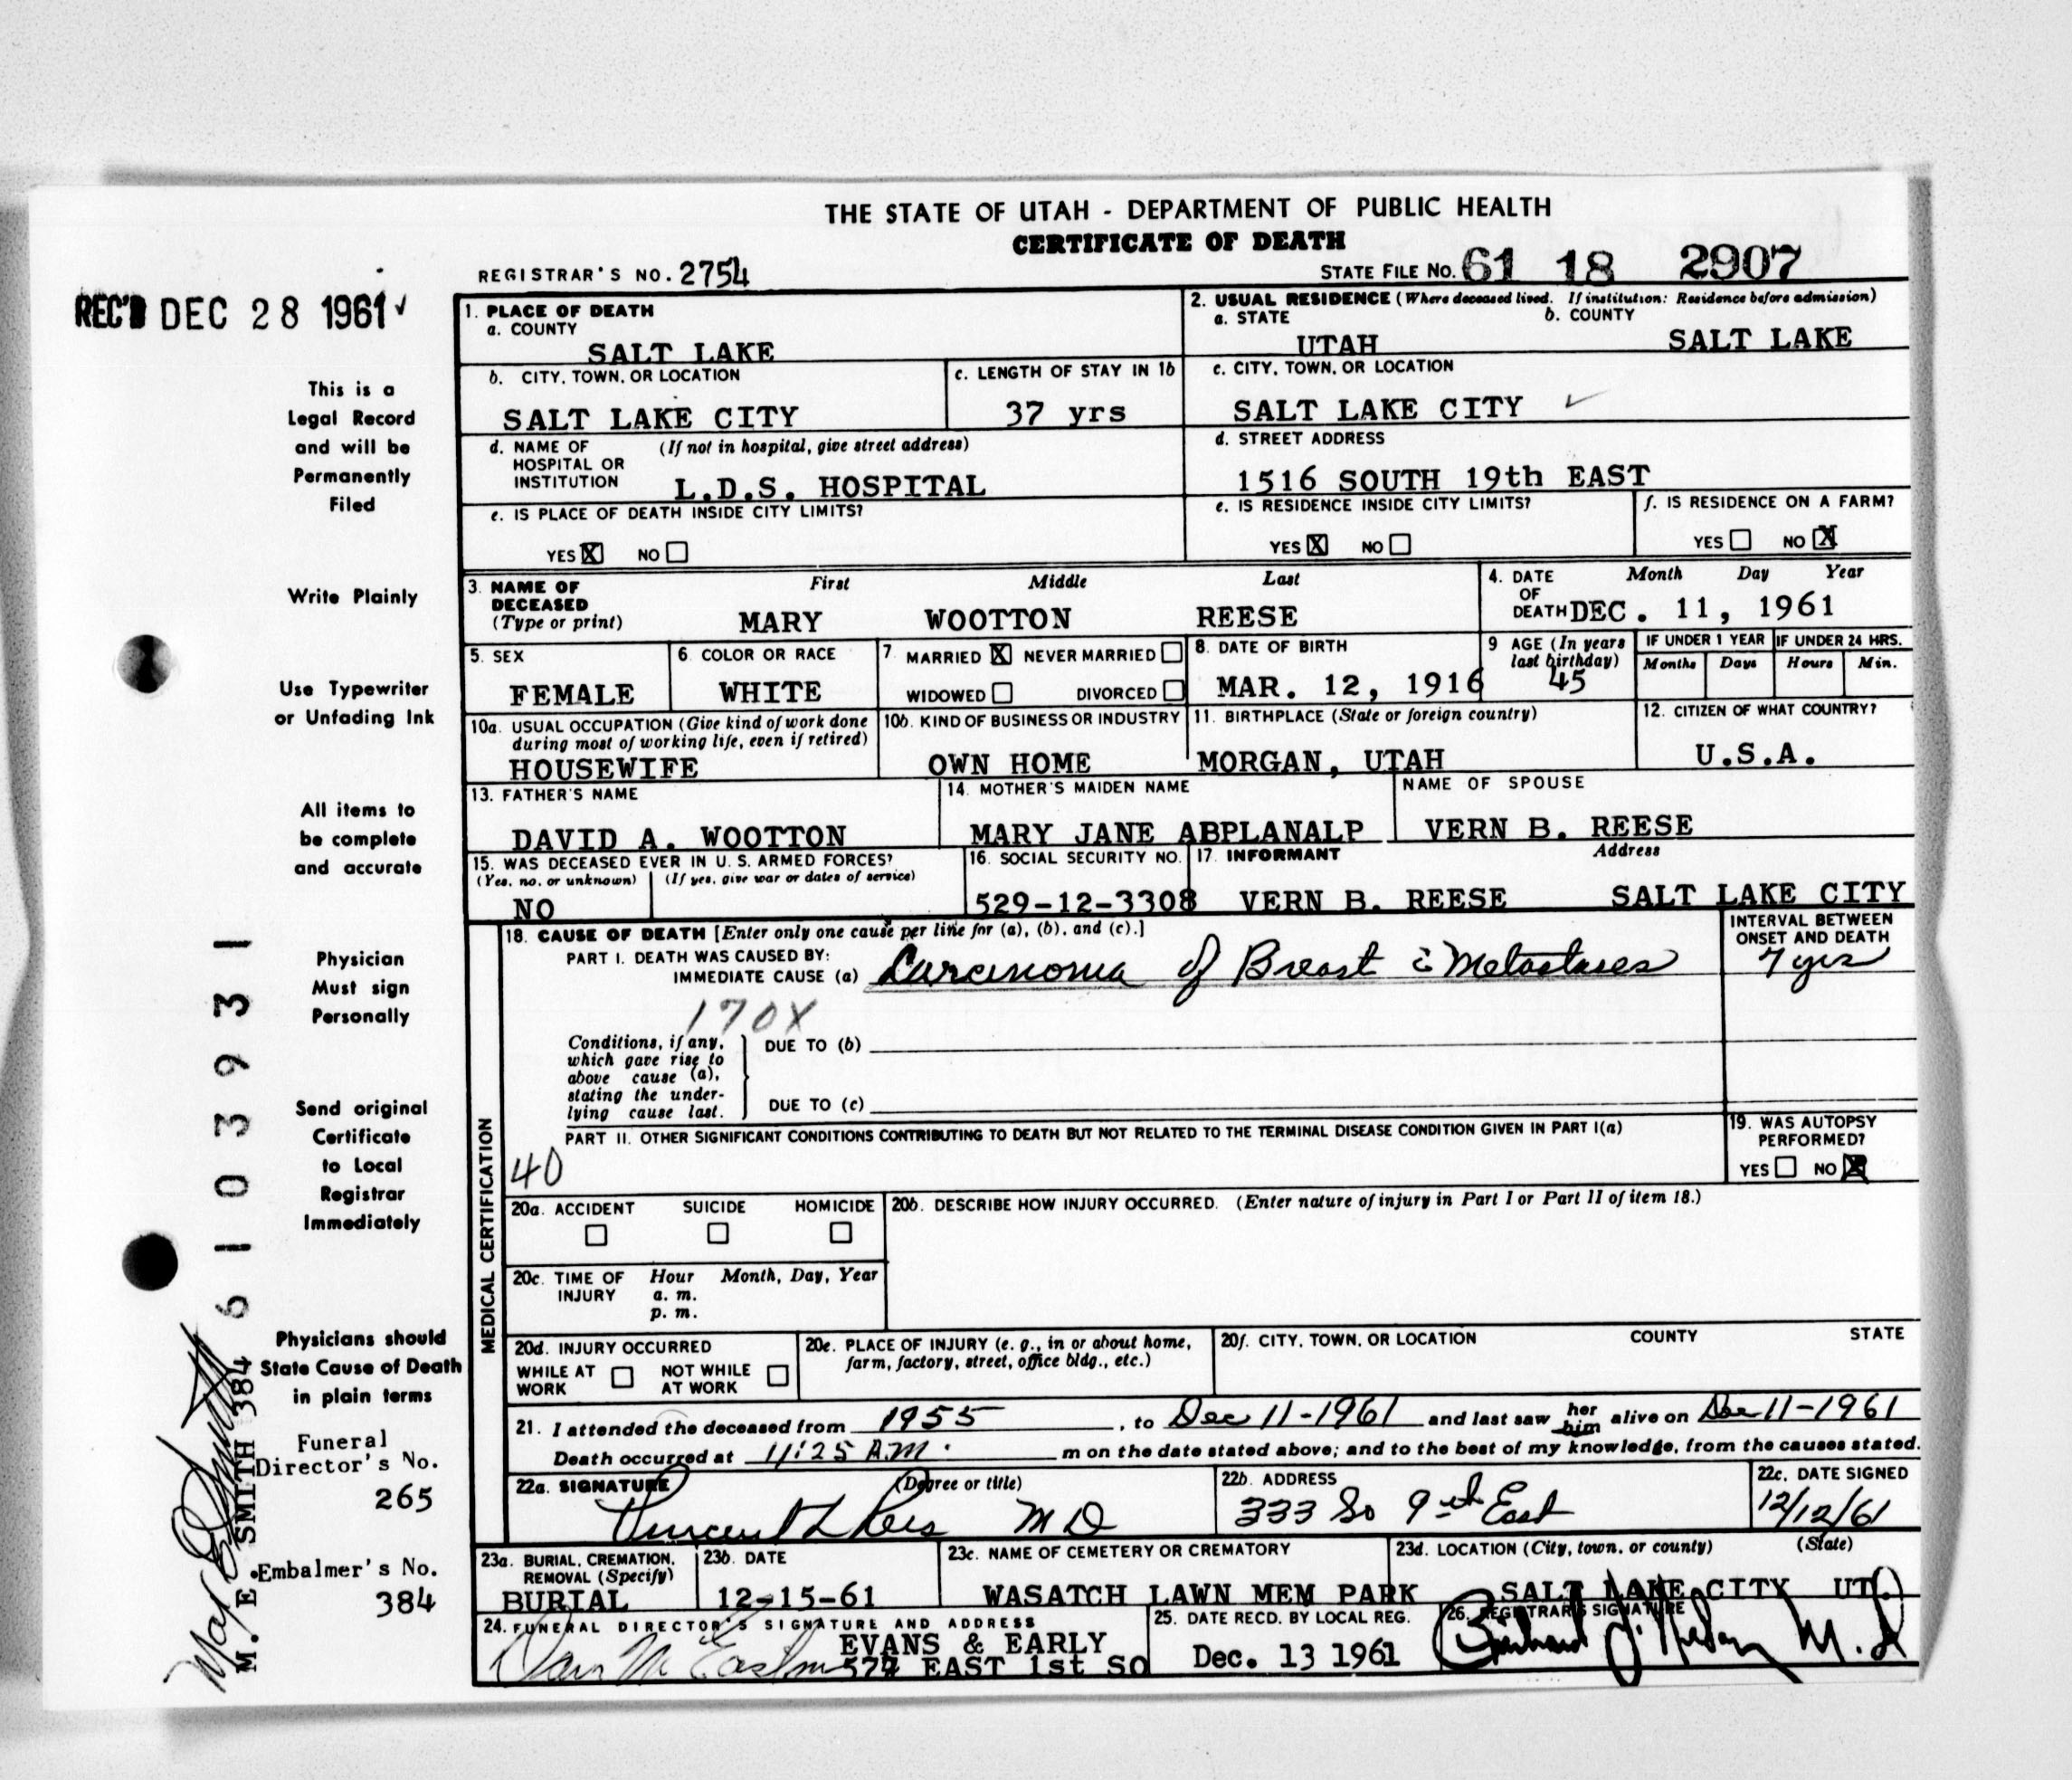 THE STATE OF UTAH - DEPARTMENT OF PUBLIC HEALTH
CERTIFICATE OF DEATH
REGISTRAR'S NO. 2754
STATE FILE NO. 61 18 2907
REC'D DEC 28 1961
1. PLACE OF DEATH
a. COUNTY
SALT LAKE
2. USUAL RESIDENCE (Where deceased lived. If institution: Residence before admission)
a. STATE b. COUNTY
UTAH SALT LAKE
b. CITY, TOWN, OR LOCATION
SALT LAKE CITY
c. LENGTH OF STAY IN 1b
37 yrs
c. CITY, TOWN, OR LOCATION
SALT LAKE CITY
d. NAME OF HOSPITAL OR INSTITUTION (If not in hospital, give street address)
L.D.S. HOSPITAL
d. STREET ADDRESS
1516 SOUTH 19th EAST
e. IS PLACE OF DEATH INSIDE CITY LIMITS?
YES X NO
e. IS RESIDENCE INSIDE CITY LIMITS?
YES X NO
f. IS RESIDENCE ON A FARM?
YES NO X
3. NAME OF DECEASED (Type or print)
First Middle Last
MARY WOOTTON REESE
4. DATE OF DEATH Month Day Year
DEC. 11, 1961
5. SEX
FEMALE
6. COLOR OR RACE
WHITE
7. MARRIED X NEVER MARRIED
WIDOWED DIVORCED
8. DATE OF BIRTH
MAR. 12, 1916
9 AGE (In years last birthday)
45
IF UNDER 1 YEAR IF UNDER 24 HRS.
Months Days Hours Min.
10a. USUAL OCCUPATION (Give kind of work done during most of working life, even if retired)
HOUSEWIFE
10b. KIND OF BUSINESS OR INDUSTRY
OWN HOME
11. BIRTHPLACE (State or foreign country)
MORGAN, UTAH
12. CITIZEN OF WHAT COUNTRY?
U.S.A.
13. FATHER'S NAME
DAVID A. WOOTTON
14. MOTHER'S MAIDEN NAME
MARY JANE ABPLANALP
NAME OF SPOUSE
VERN B. REESE
15. WAS DECEASED EVER IN U. S. ARMED FORCES?
(Yes, no, or unknown) (If yes, give war or dates of service)
NO
16. SOCIAL SECURITY NO.
529-12-3308
17. INFORMANT Address
VERN B. REESE SALT LAKE CITY
MEDICAL CERTIFICATION
18. CAUSE OF DEATH [Enter only one cause per line for (a), (b), and (c).]
PART I. DEATH WAS CAUSED BY:
IMMEDIATE CAUSE (a) Carcinoma of Breast c̄ Metastases
INTERVAL BETWEEN ONSET AND DEATH
7 yrs
170X
Conditions, if any, which gave rise to above cause (a), stating the underlying cause last.
DUE TO (b)
DUE TO (c)
PART II. OTHER SIGNIFICANT CONDITIONS CONTRIBUTING TO DEATH BUT NOT RELATED TO THE TERMINAL DISEASE CONDITION GIVEN IN PART I(a)
40
19. WAS AUTOPSY PERFORMED?
YES NO X
20a. ACCIDENT SUICIDE HOMICIDE
20b. DESCRIBE HOW INJURY OCCURRED. (Enter nature of injury in Part I or Part II of item 18.)
20c. TIME OF INJURY Hour Month, Day, Year
a. m.
p. m.
20d. INJURY OCCURRED
WHILE AT WORK NOT WHILE AT WORK
20e. PLACE OF INJURY (e. g., in or about home, farm, factory, street, office bldg., etc.)
20f. CITY, TOWN, OR LOCATION COUNTY STATE
21. I attended the deceased from 1955, to Dec 11-1961 and last saw her him alive on Dec 11-1961
Death occurred at 11:25 A.M. m on the date stated above; and to the best of my knowledge, from the causes stated.
22a. SIGNATURE (Degree or title)
Vincent L Rees MD
22b. ADDRESS
333 So 9th East
22c. DATE SIGNED
12/12/61
23a. BURIAL, CREMATION, REMOVAL (Specify)
BURIAL
23b. DATE
12-15-61
23c. NAME OF CEMETERY OR CREMATORY
WASATCH LAWN MEM PARK
23d. LOCATION (City, town, or county) (State)
SALT LAKE CITY UT
24. FUNERAL DIRECTOR'S SIGNATURE AND ADDRESS
EVANS & EARLY
574 EAST 1st SO
25. DATE RECD. BY LOCAL REG.
Dec. 13 1961
26. REGISTRAR'S SIGNATURE
M.D
This is a
Legal Record
and will be
Permanently
Filed
Write Plainly
Use Typewriter
or Unfading Ink
All items to
be complete
and accurate
Physician
Must sign
Personally
Send original
Certificate
to Local
Registrar
Immediately
Physicians should
State Cause of Death
in plain terms
Funeral
Director's No.
265
Embalmer's No.
384
M. E. SMITH 384
6103931